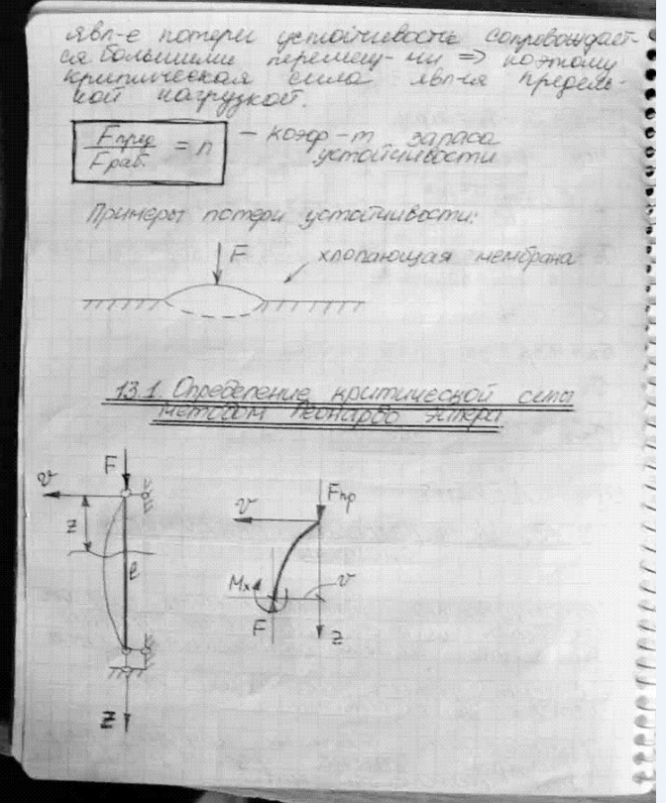 явл-е потери устойчивость сопровождает-
ся большими перемещ-ми => поэтому
критическая сила явл-ся предель-
ной нагрузкой.
Fпред / Fраб. = n – коэф-т запаса
устойчивости
Примеры потери устойчивости:
F хлопающая мембрана
13.1. Определение критической силы
методом Леонардо Эйлера
F
v
z
l
z
Fкр
v
Mx
v
F
z